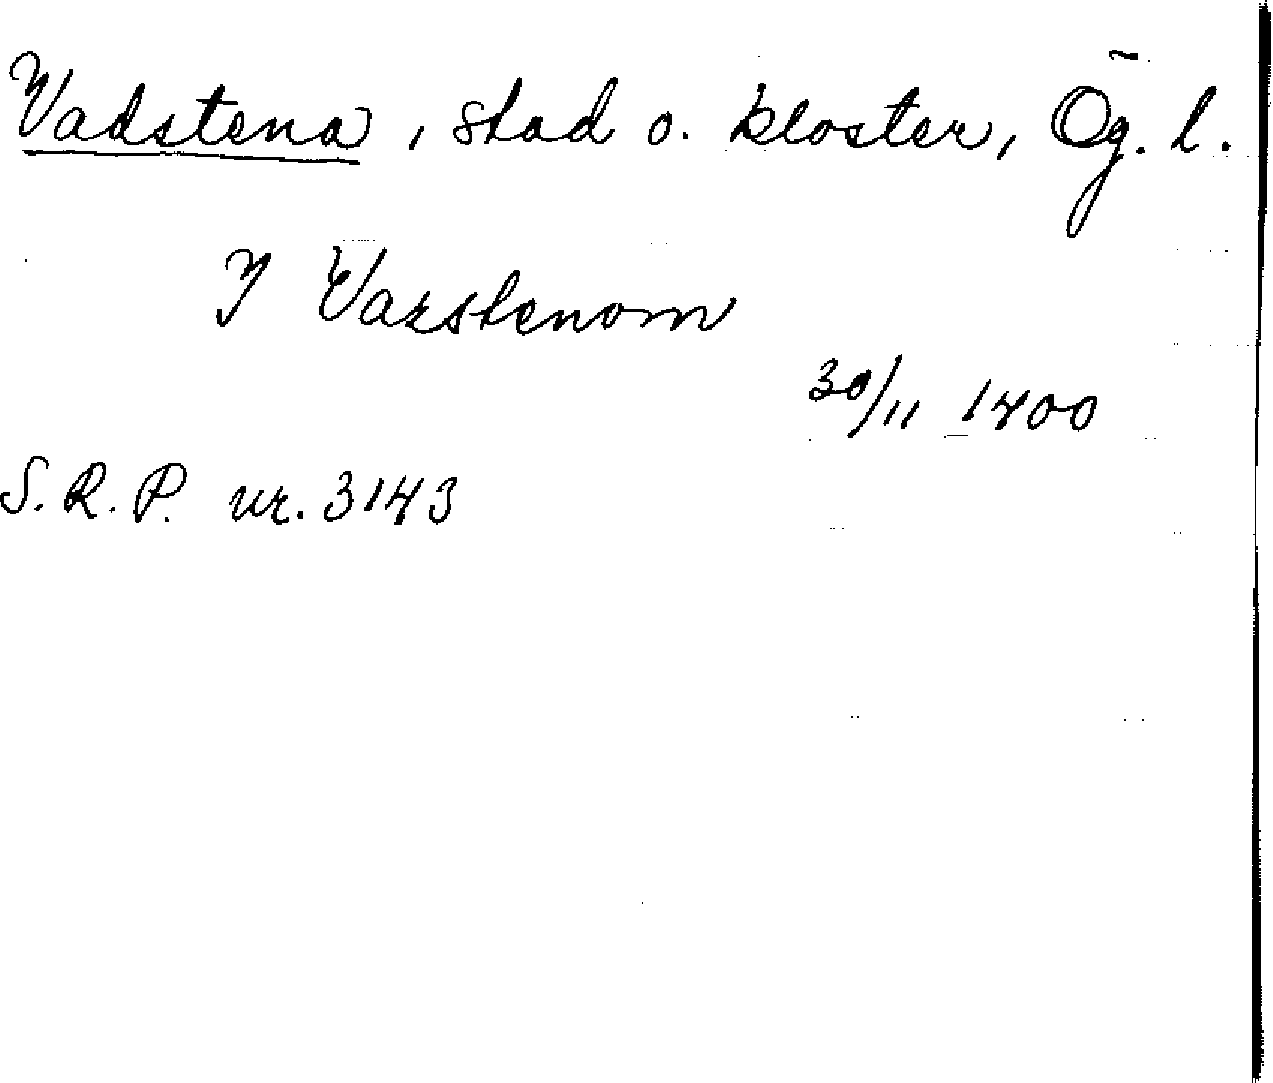 Vadstena, stad o. kloster, Ög. l.
I Varstenom
30/11 1400
S.R.P. nr. 3143